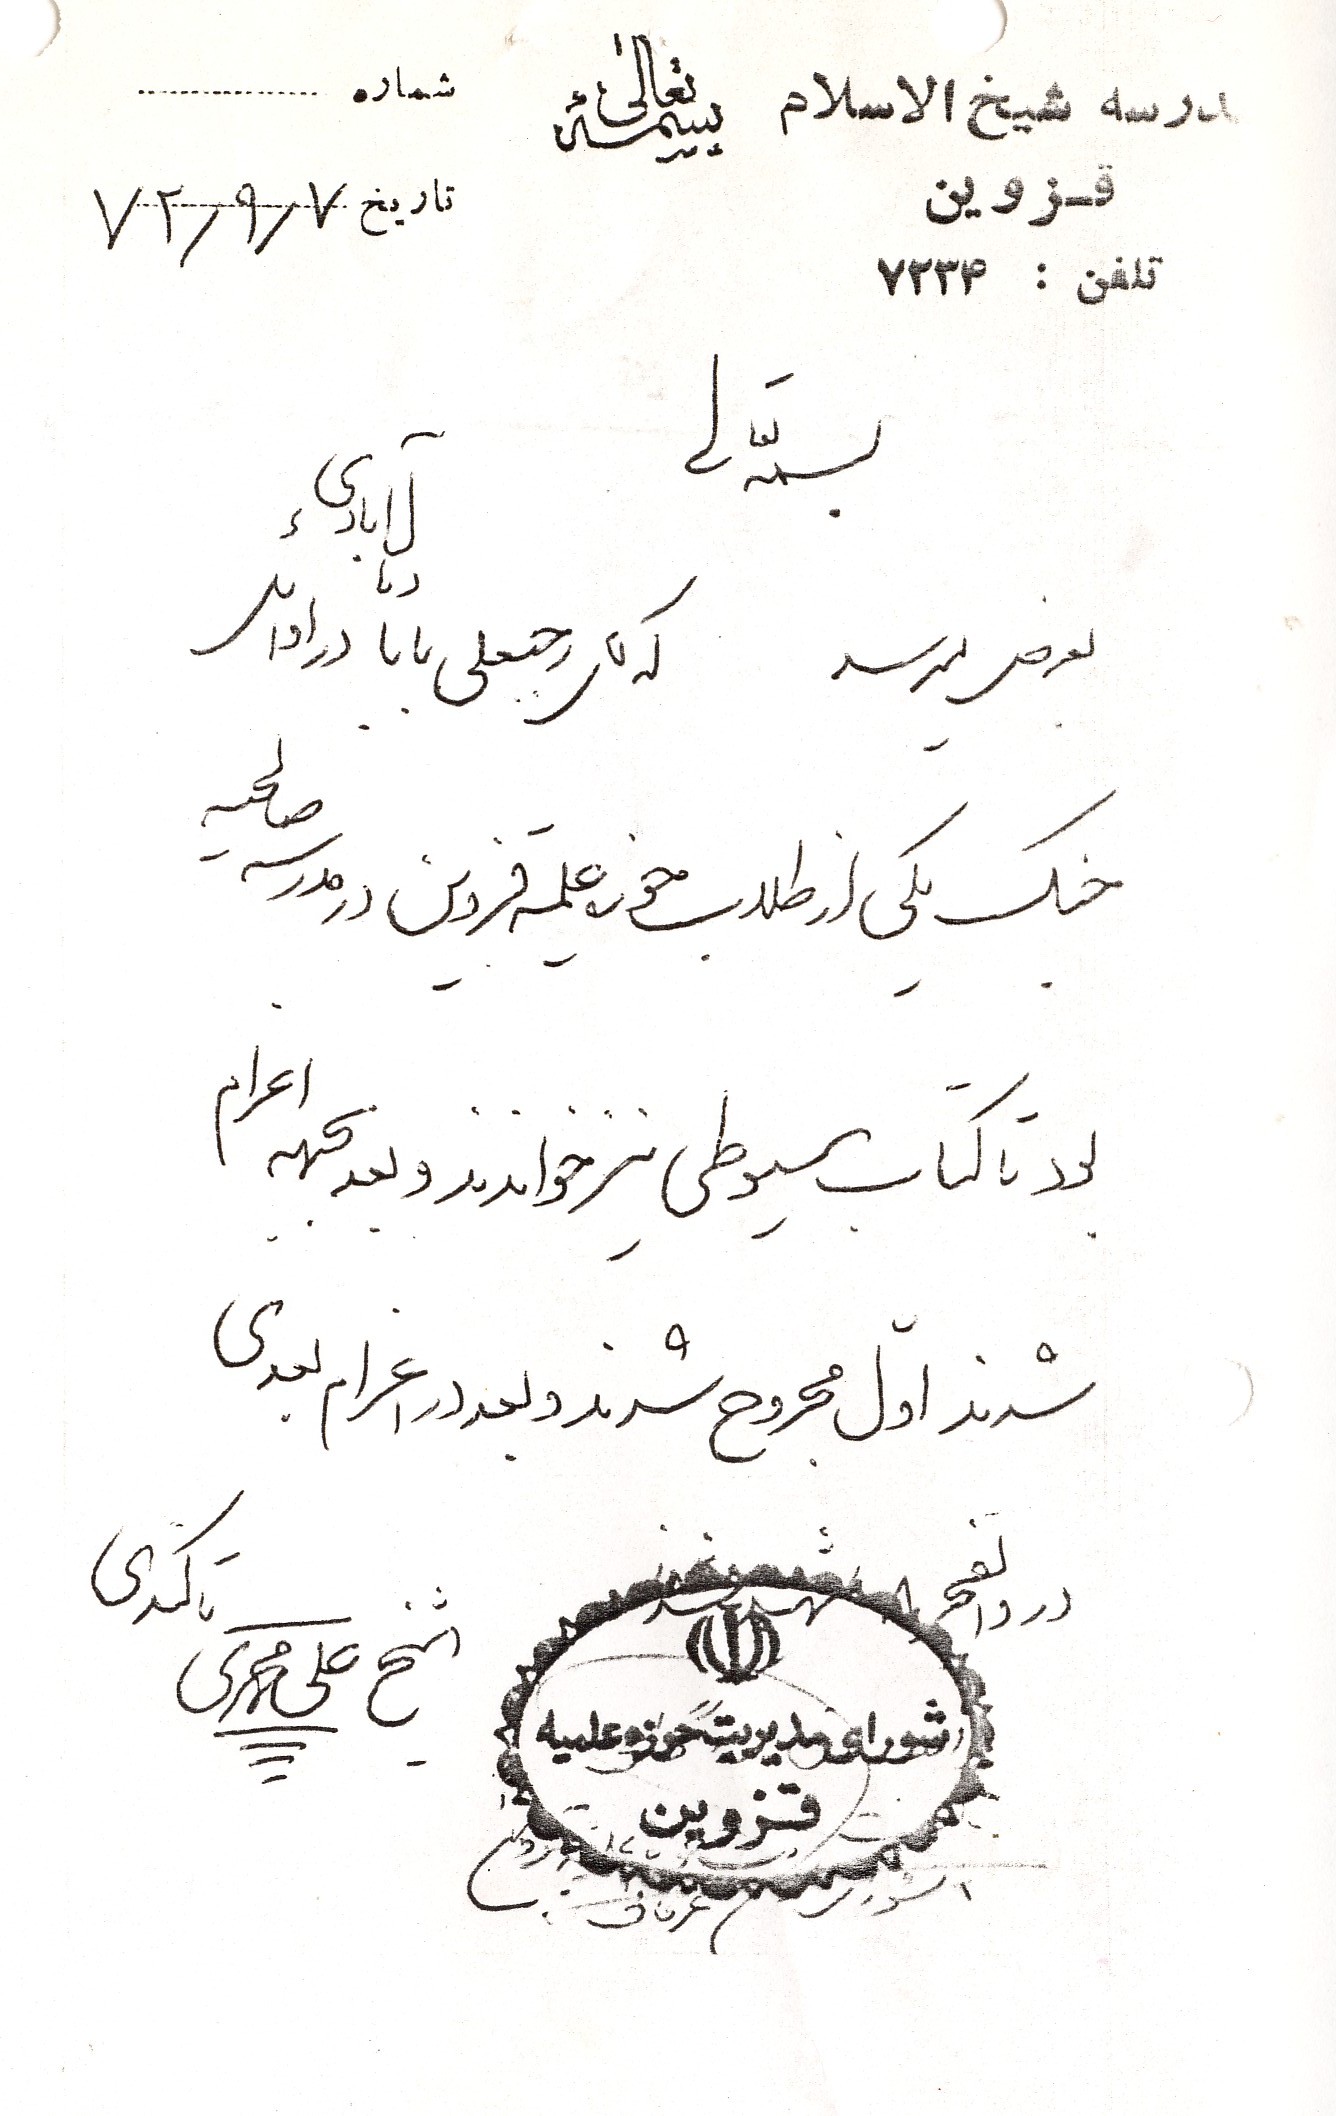 مدرسه شیخ الاسلام
قزوین
تلفن : ۷۲۳۴
بسمه تعالی
شماره
تاریخ ۷۲/۹/۷
بسمه تعالی
بعرض میرسد که آقای رجبعلی بابا در اوائل
جنگ یکی از طلاب حوزه علمیه قزوین در مدرسه صالحیه
بود تا کتاب سیوطی نیز خواندند و بعد بجبهه اعزام
شدند اول مجروح شدند و بعد در اعزام بعدی
در والفجر ۸ شهید شدند
الشیخ علی محمدی تاکندی
شورای مدیریت حوزه علمیه
قزوین